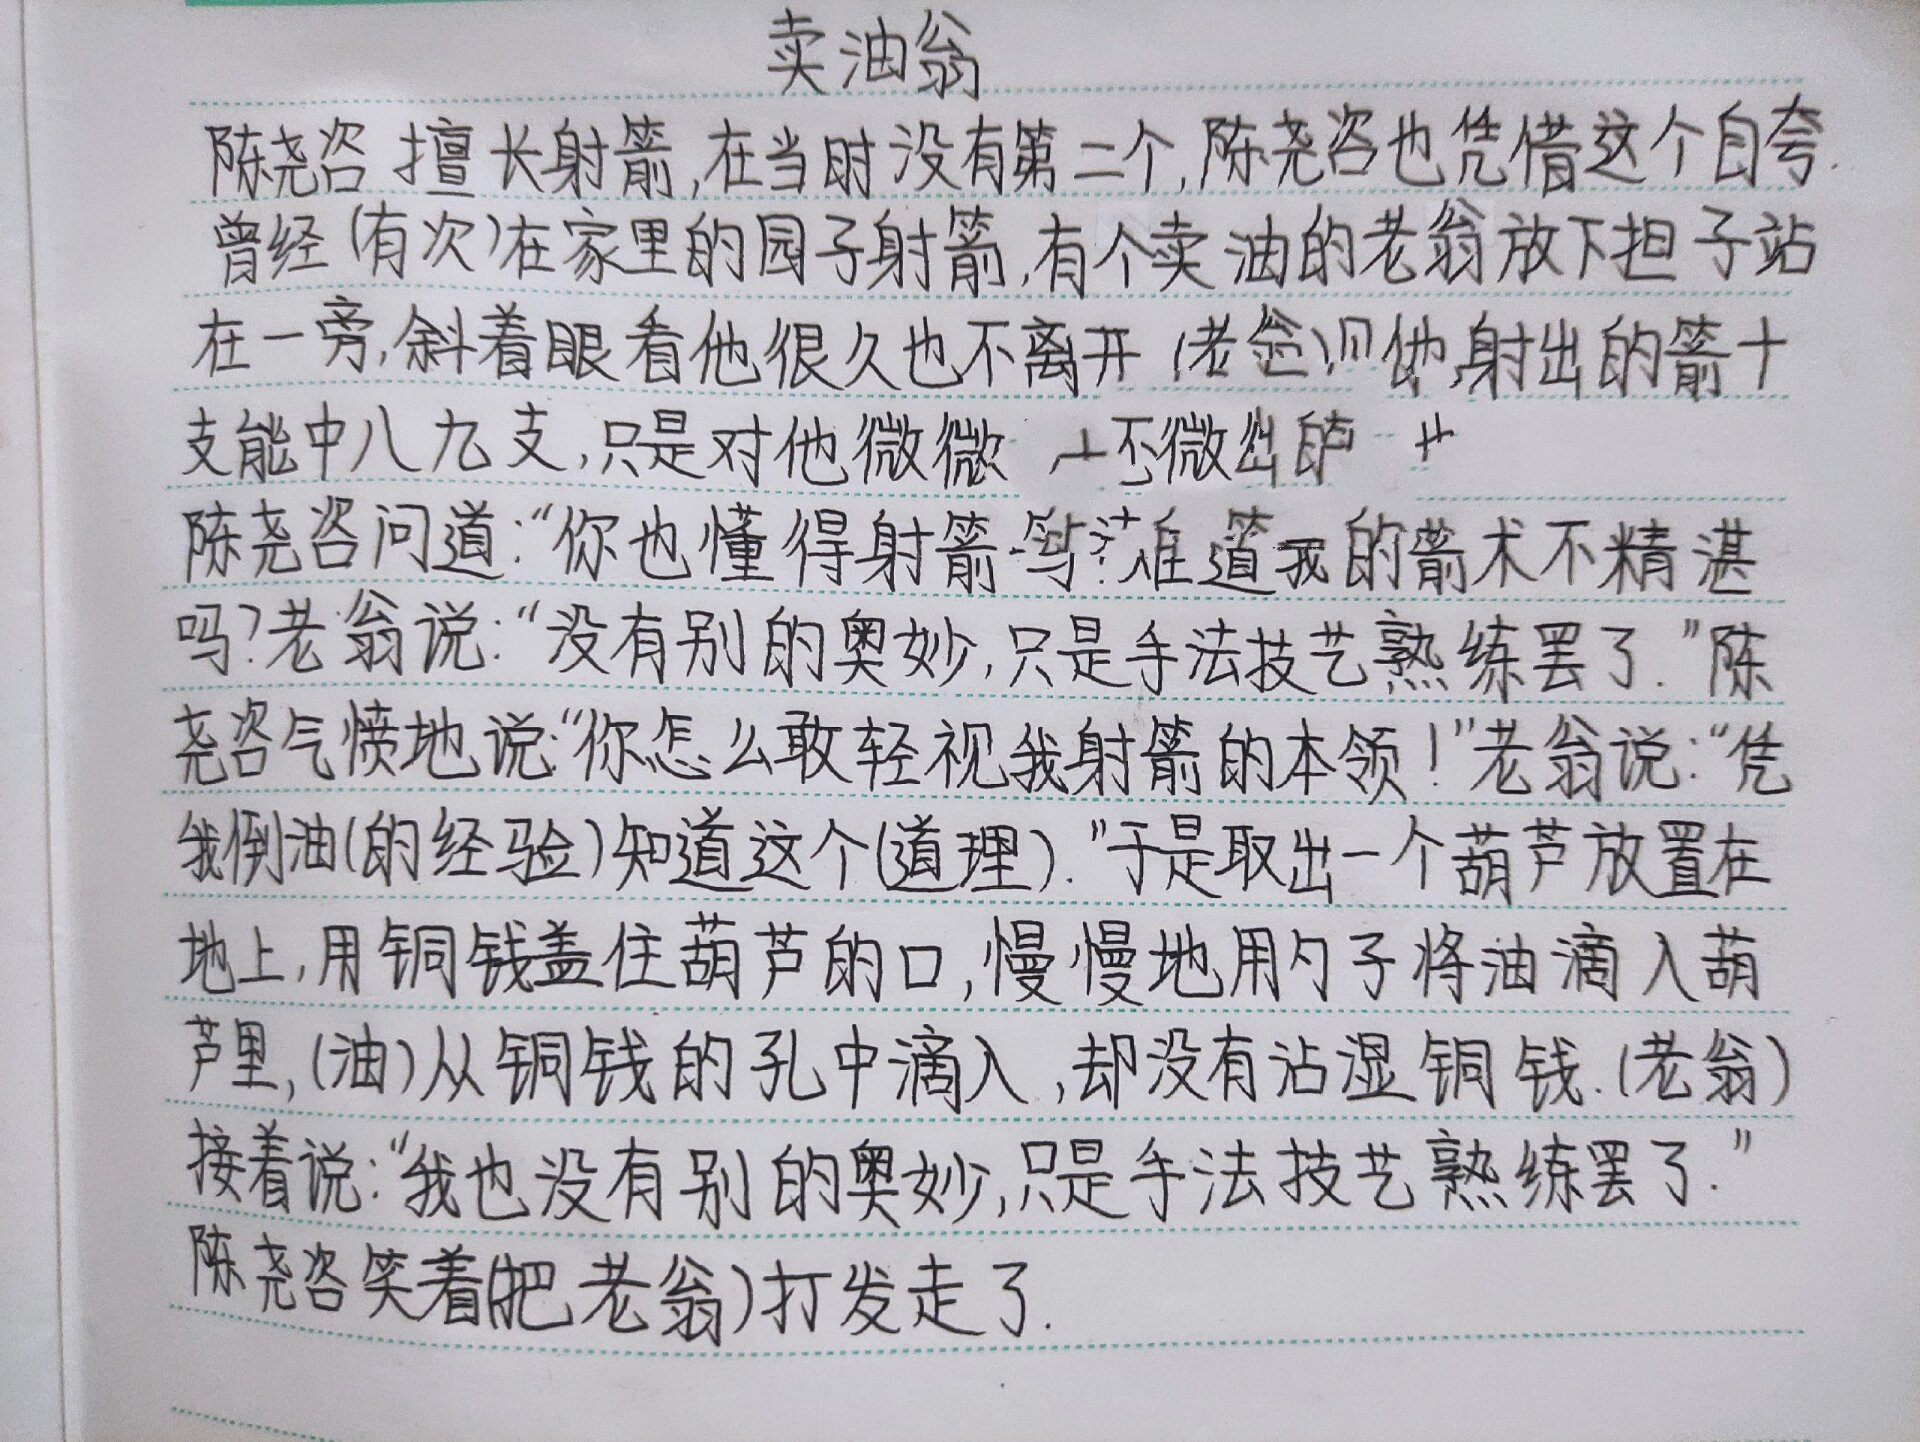 卖油翁
陈尧咨擅长射箭,在当时没有第二个,陈尧咨也凭借这个自夸.
曾经(有次)在家里的园子射箭,有个卖油的老翁放下担子站
在一旁,斜着眼看他很久也不离开(老翁)他射出的箭十
支能中八九支,只是对他微微
陈尧咨问道:“你也懂得射箭 道我的箭术不精湛
吗?老翁说:“没有别的奥妙,只是手法技艺熟练罢了.”陈
尧咨气愤地说:“你怎么敢轻视我射箭的本领!”老翁说:“凭
我倒油(的经验)知道这个(道理).”于是取出一个葫芦放置在
地上,用铜钱盖住葫芦的口,慢慢地用勺子将油滴入葫
芦里,(油)从铜钱的孔中滴入,却没有沾湿铜钱.(老翁)
接着说:“我也没有别的奥妙,只是手法技艺熟练罢了.”
陈尧咨笑着(把老翁)打发走了.